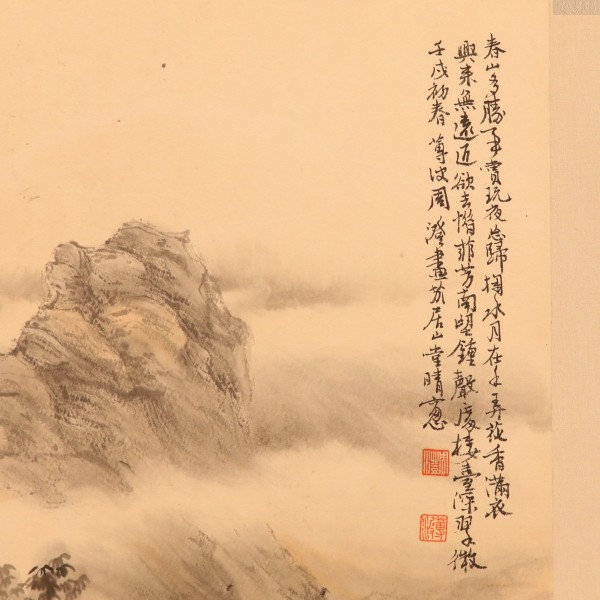 春山多勝事賞玩夜忘歸掬水月在手弄花香滿衣
興來無遠近欲去惜菲芳南望鐘聲處樓臺深翠微
壬戌初春蓴波周澄畫於居山堂晴窗
周澄
蓴波